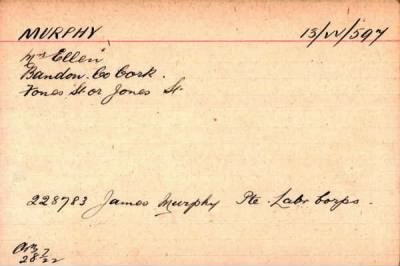 MURPHY, 13/W/597
Mrs Ellen
Bandon. Co Cork.
Tones St or Jones St.
228783 James Murphy Pte. Labr Corps.